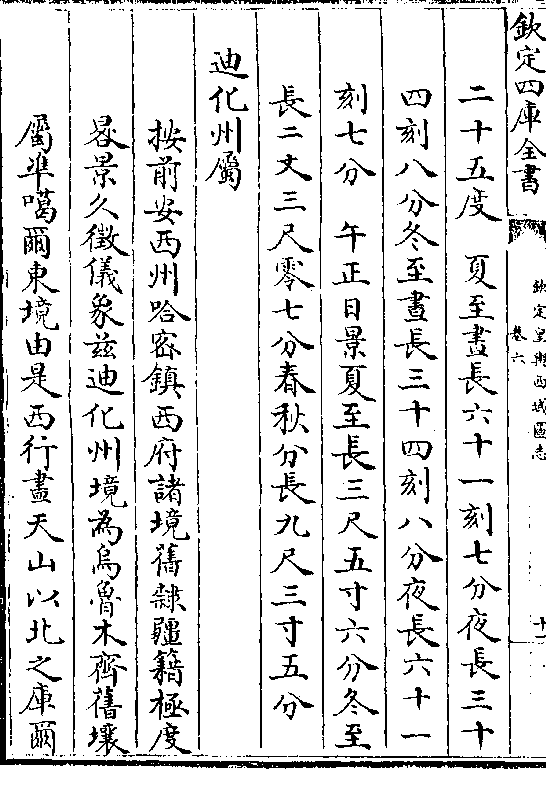 欽定四庫全書
欽定皇輿西域圖志
卷六
二十五度　夏至晝長六十一刻七分夜長三十
四刻八分冬至晝長三十四刻八分夜長六十一
刻七分　午正日景夏至長三尺五寸六分冬至
長二丈三尺零七分春秋分長九尺三寸五分
迪化州屬
按前安西州哈密鎮西府諸境舊隸疆籍極度
晷景久徵儀象兹迪化州境為烏魯木齊舊壤
屬準噶爾東境由是西行盡天山以北之庫爾